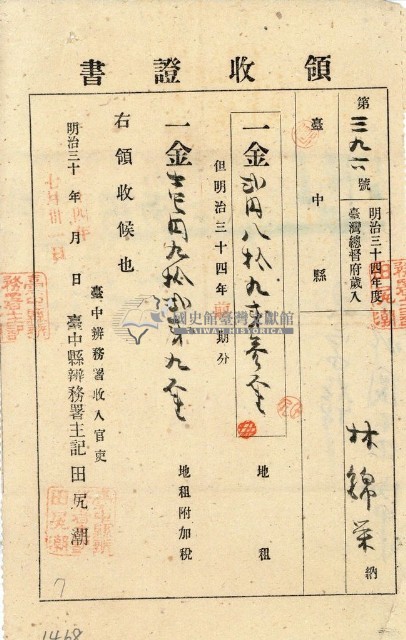 領收證書
第三九六號
明治三十四年度
臺灣總督府歲入
林錦榮 納
臺中縣
一金貳円八拾九錢參厘 地租
但明治三十四年前期分
一金壹円九拾錢九厘 地租附加稅
右領收候也
明治三十年 月 日
四年
七月卅一日
臺中辨務署收入官吏
臺中縣辨務署主記 田尻潮
國史館臺灣文獻館
TAIWAN HISTORICA
7
1468